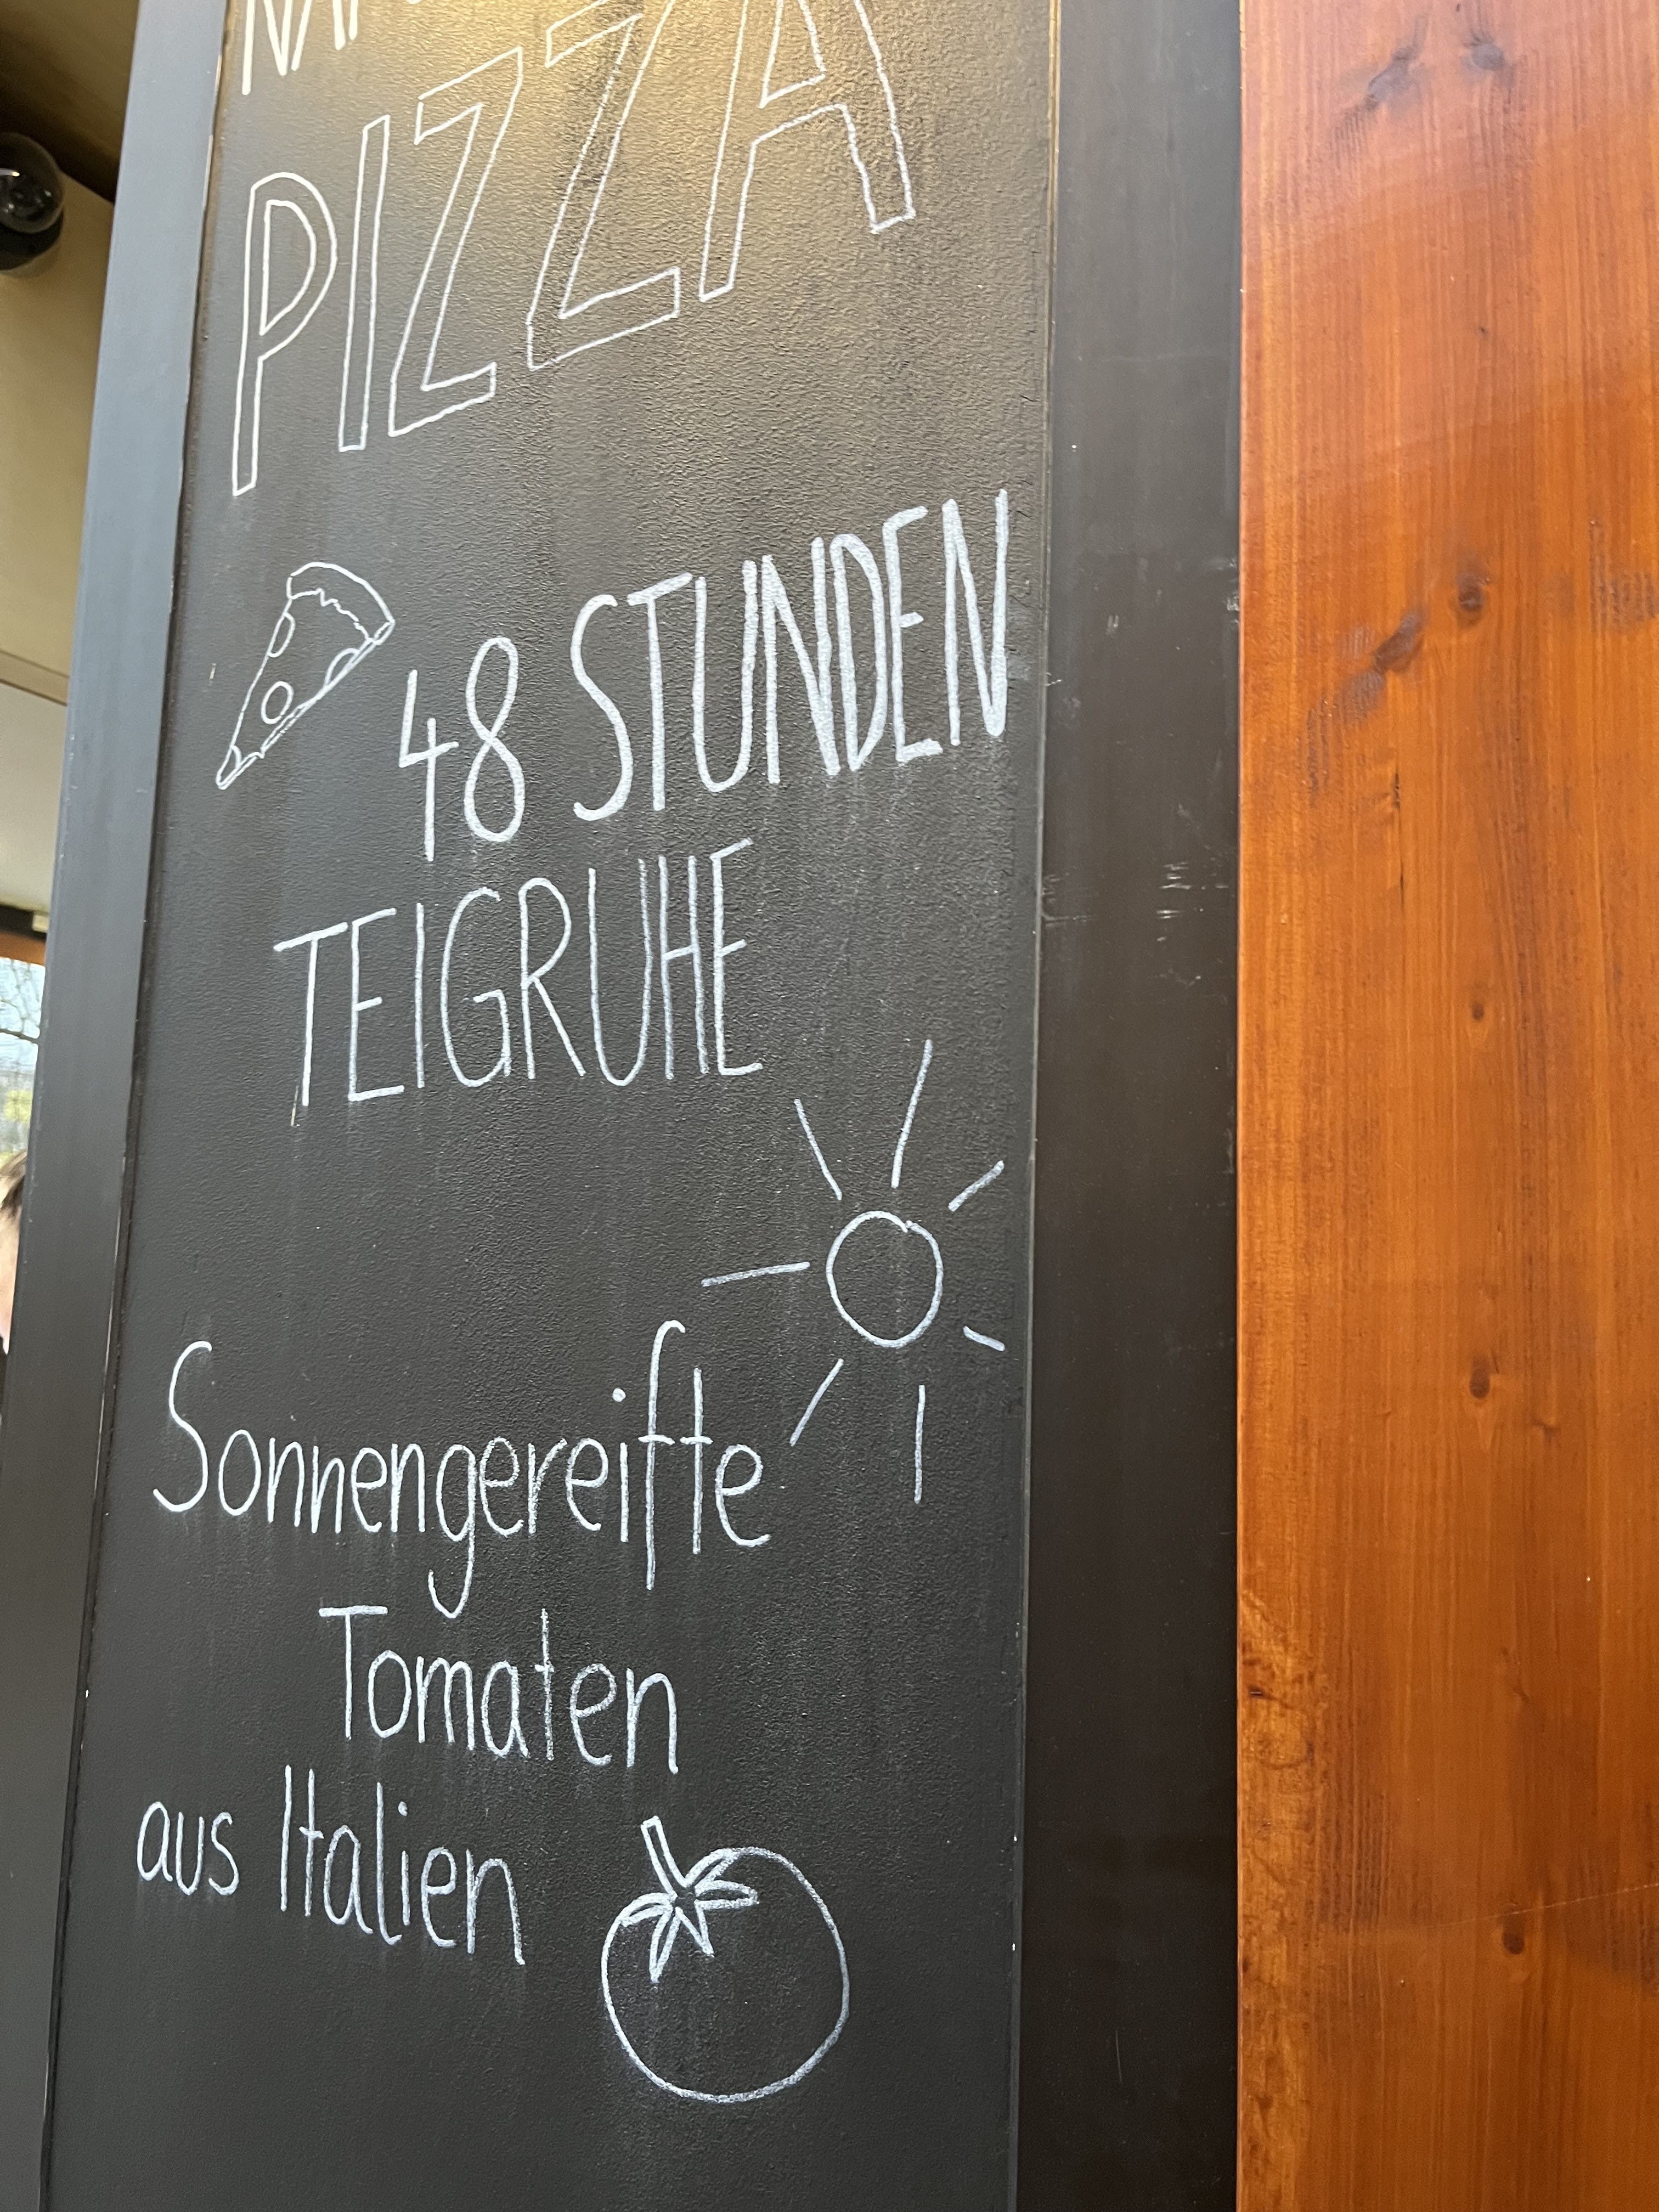 PIZZA
48 STUNDEN
TEIGRUHE
Sonnengereifte
Tomaten
aus Italien